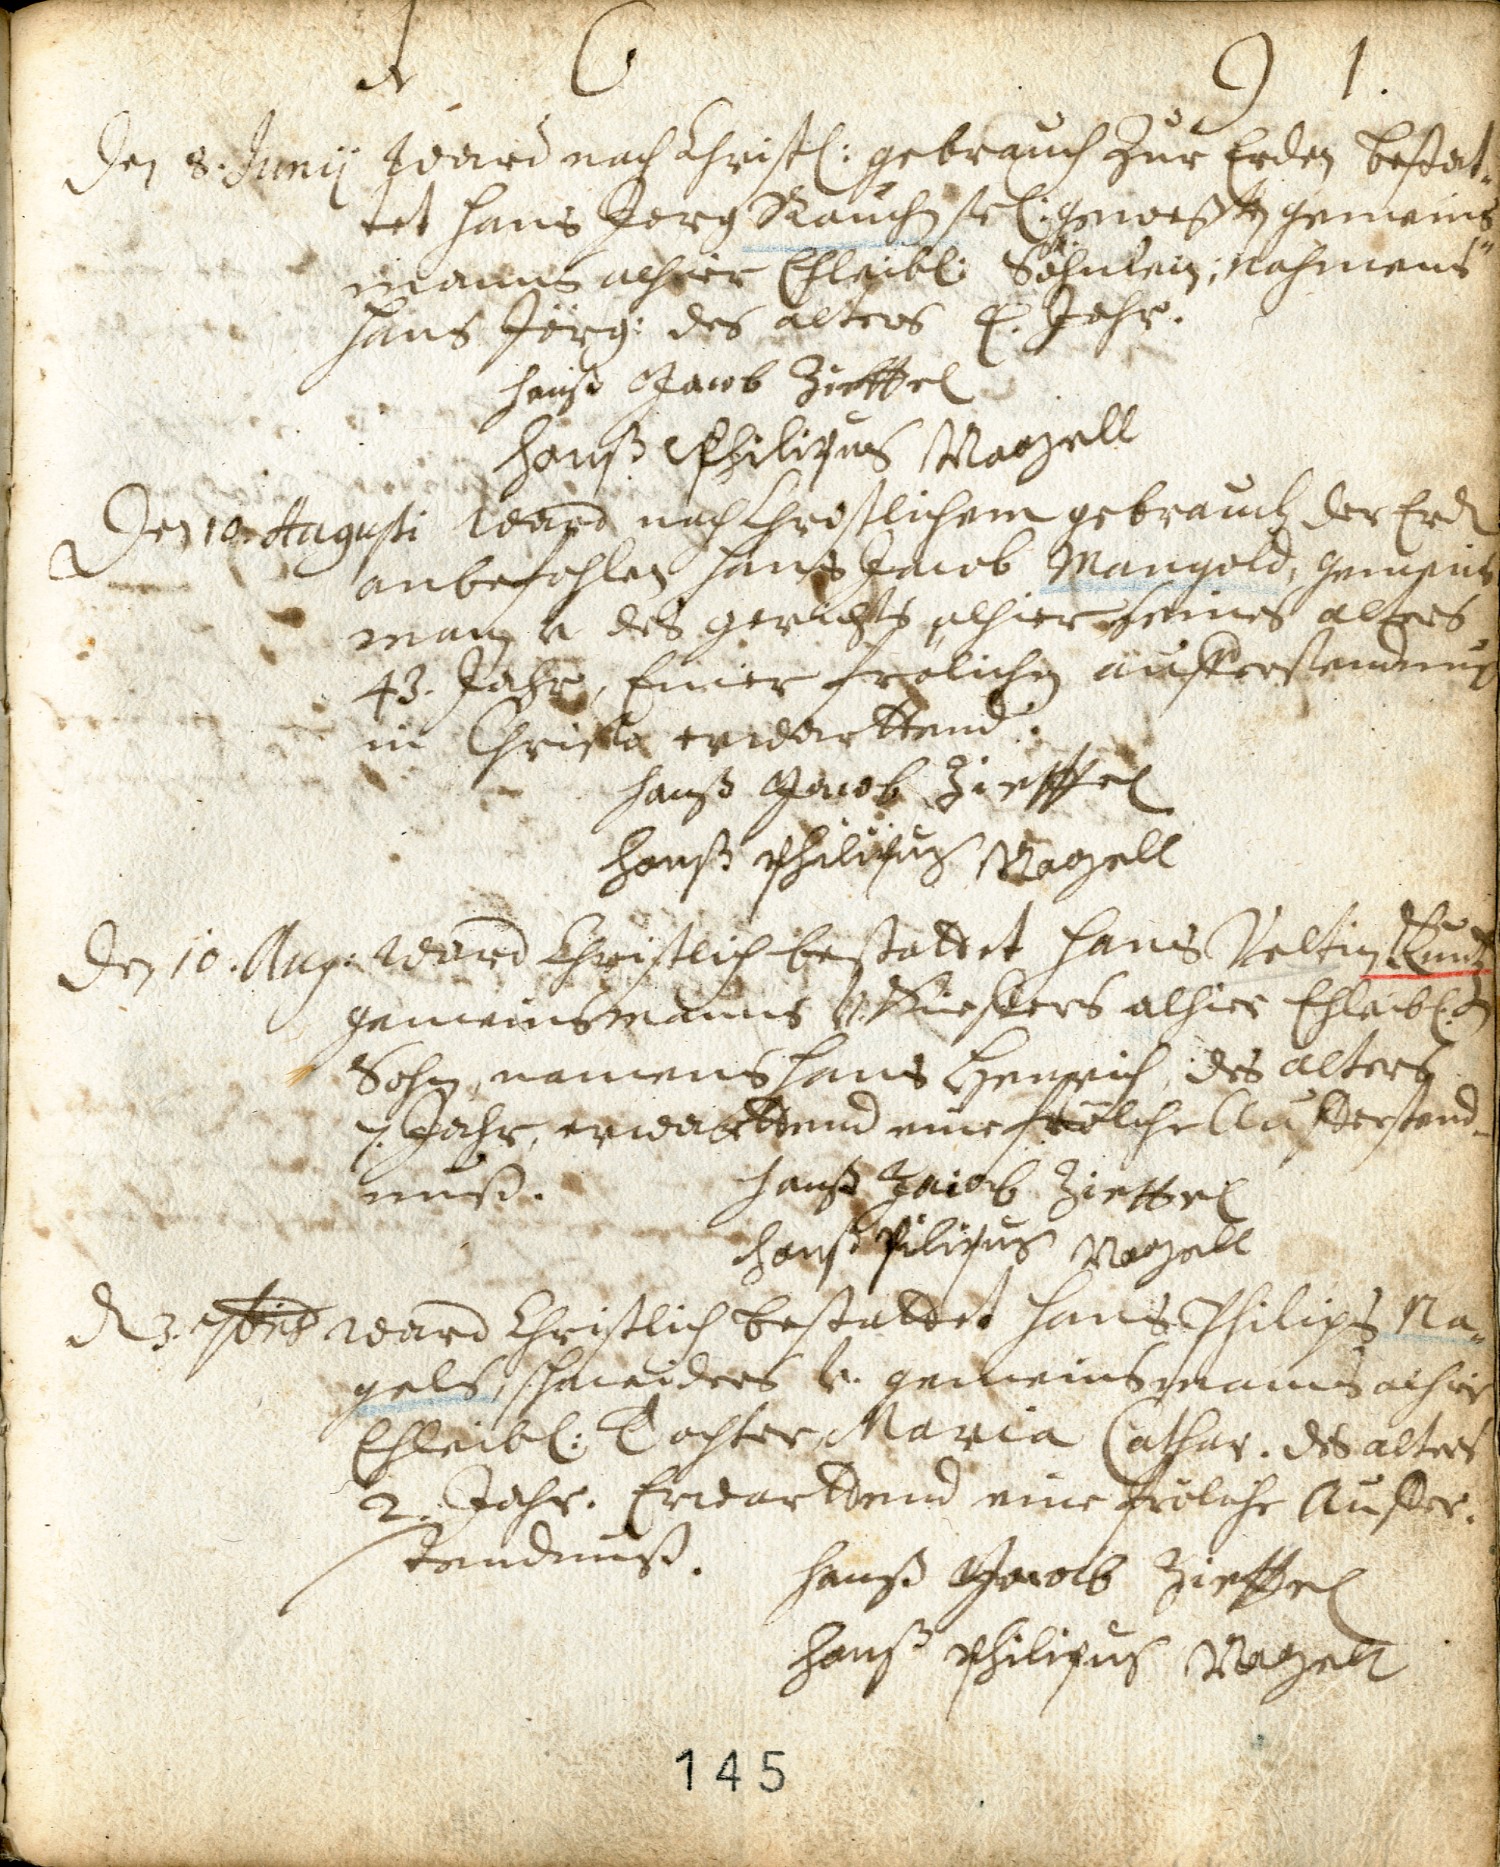 1 6 9 1.
Den 8. Junij Ward nach Christl: gebrauch Zur Erden bestat-
tet Hans Jerg Rauchen sel: geweßten gemeins
manns alhier Ehleibl: Söhnlein, nahmens
Hans Jörg: des alters Jahr.
Hanß Jacob Zieffel
Hanß Philipus Nagell
Den 10. Augusti Ward nach Christlichem gebrauch der Erd
anbefohlen Hans Jacob Mangold, gemeins
man v des gerichts alhier seines alters
43. Jahr, Einer frölichen aufferstendnus
in Christo erwarttend.
Hanß Jacob Zieffel
Hanß Philipus Nagell
Den 10. Aug: Ward Christlich bestattet Hans Veltin Kuntz
gemeinsmanns v. Kieffers alhier Ehleibl.
Sohn, namens Hans Henrich, des alters
7. Jahr, erwarttend eine frölche Aufferstend-
nuß. Hanß Jacob Zieffel
Hanß Pilipus Nagell
d 3. ward Christlich bestattet Hans Philips Na-
gels, schneiders v. gemeinsmanns alhier
Ehleibl: Tochter Maria Cathar. des alters
2. Jahr. Erwarttend eine frölche Auffer-
stendnuß. Hanß Jacob Zieffel
Hanß Philipus Nagell
145